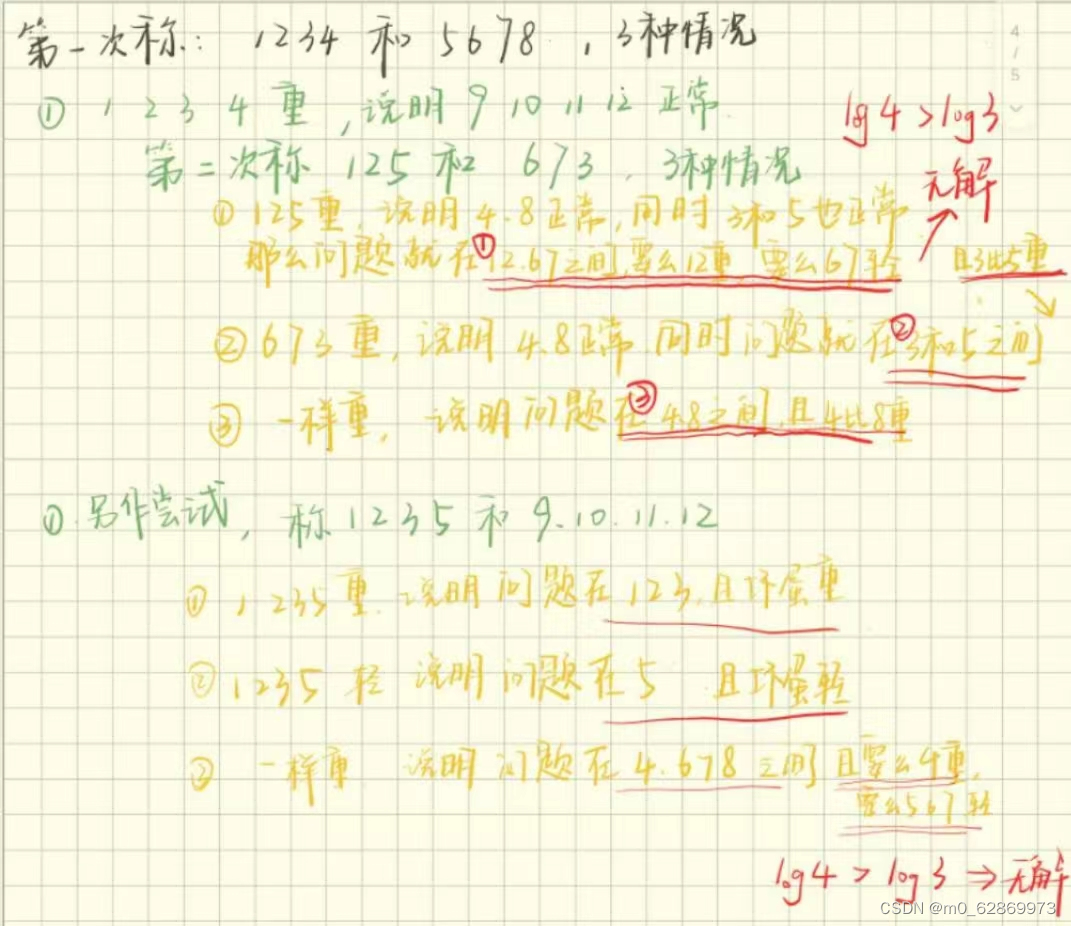 第一次称: 1234 和 5678 , 3种情况
4/5
① 1 2 3 4 重, 说明 9 10 11 12 正常
log4 > log3
第二次称 125 和 673 , 3种情况
无解
① 125重, 说明 4.8正常, 同时 3和5也正常
那么问题就在①12.67之间, 要么12重, 要么67轻 且3比5重
② 673 重, 说明 4.8正常 同时问题就在②3和5之间
③ 一样重, 说明问题在③4.8之间, 且4比8重
① 另作尝试, 称 1235 和 9.10.11.12
① 1235重, 说明问题在123, 且坏蛋重
② 1235 轻 说明问题在5 且坏蛋轻
③ 一样重 说明问题在4.678之间 且要么4重,
要么567轻
log4 > log3 ⇒ 无解
CSDN @m0_62869973